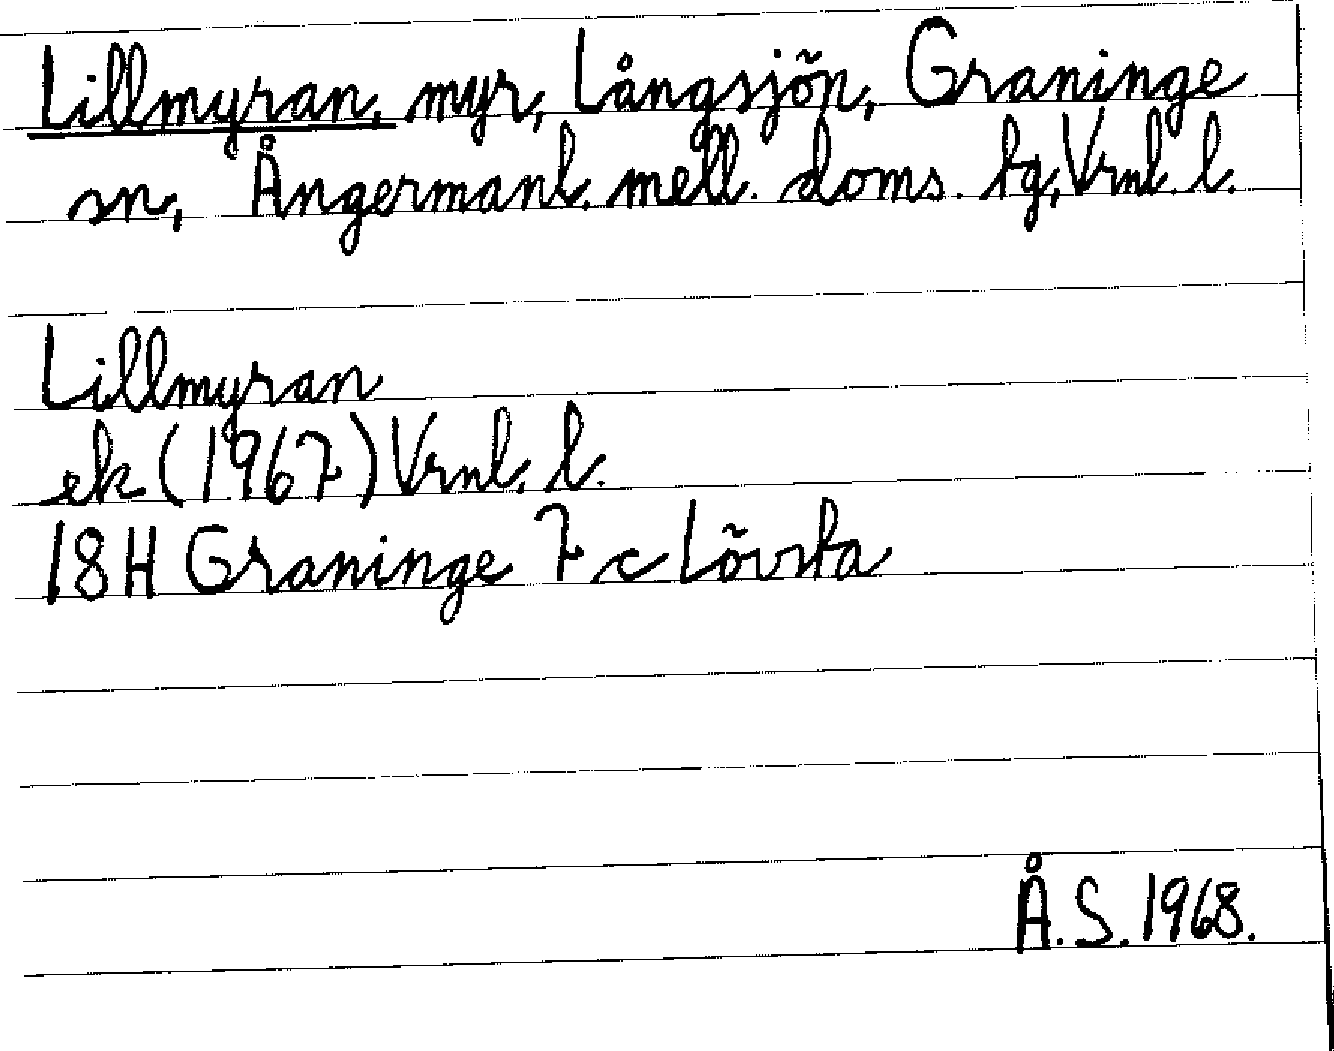 Lillmyran, myr, Långsjön, Graninge
sn, Ångermanl. mell. doms. tg, Vrnl. l.
Lillmyran
ek (1967) Vrnl. l.
18H Graninge 7 c Lövsta
Å.S. 1968.